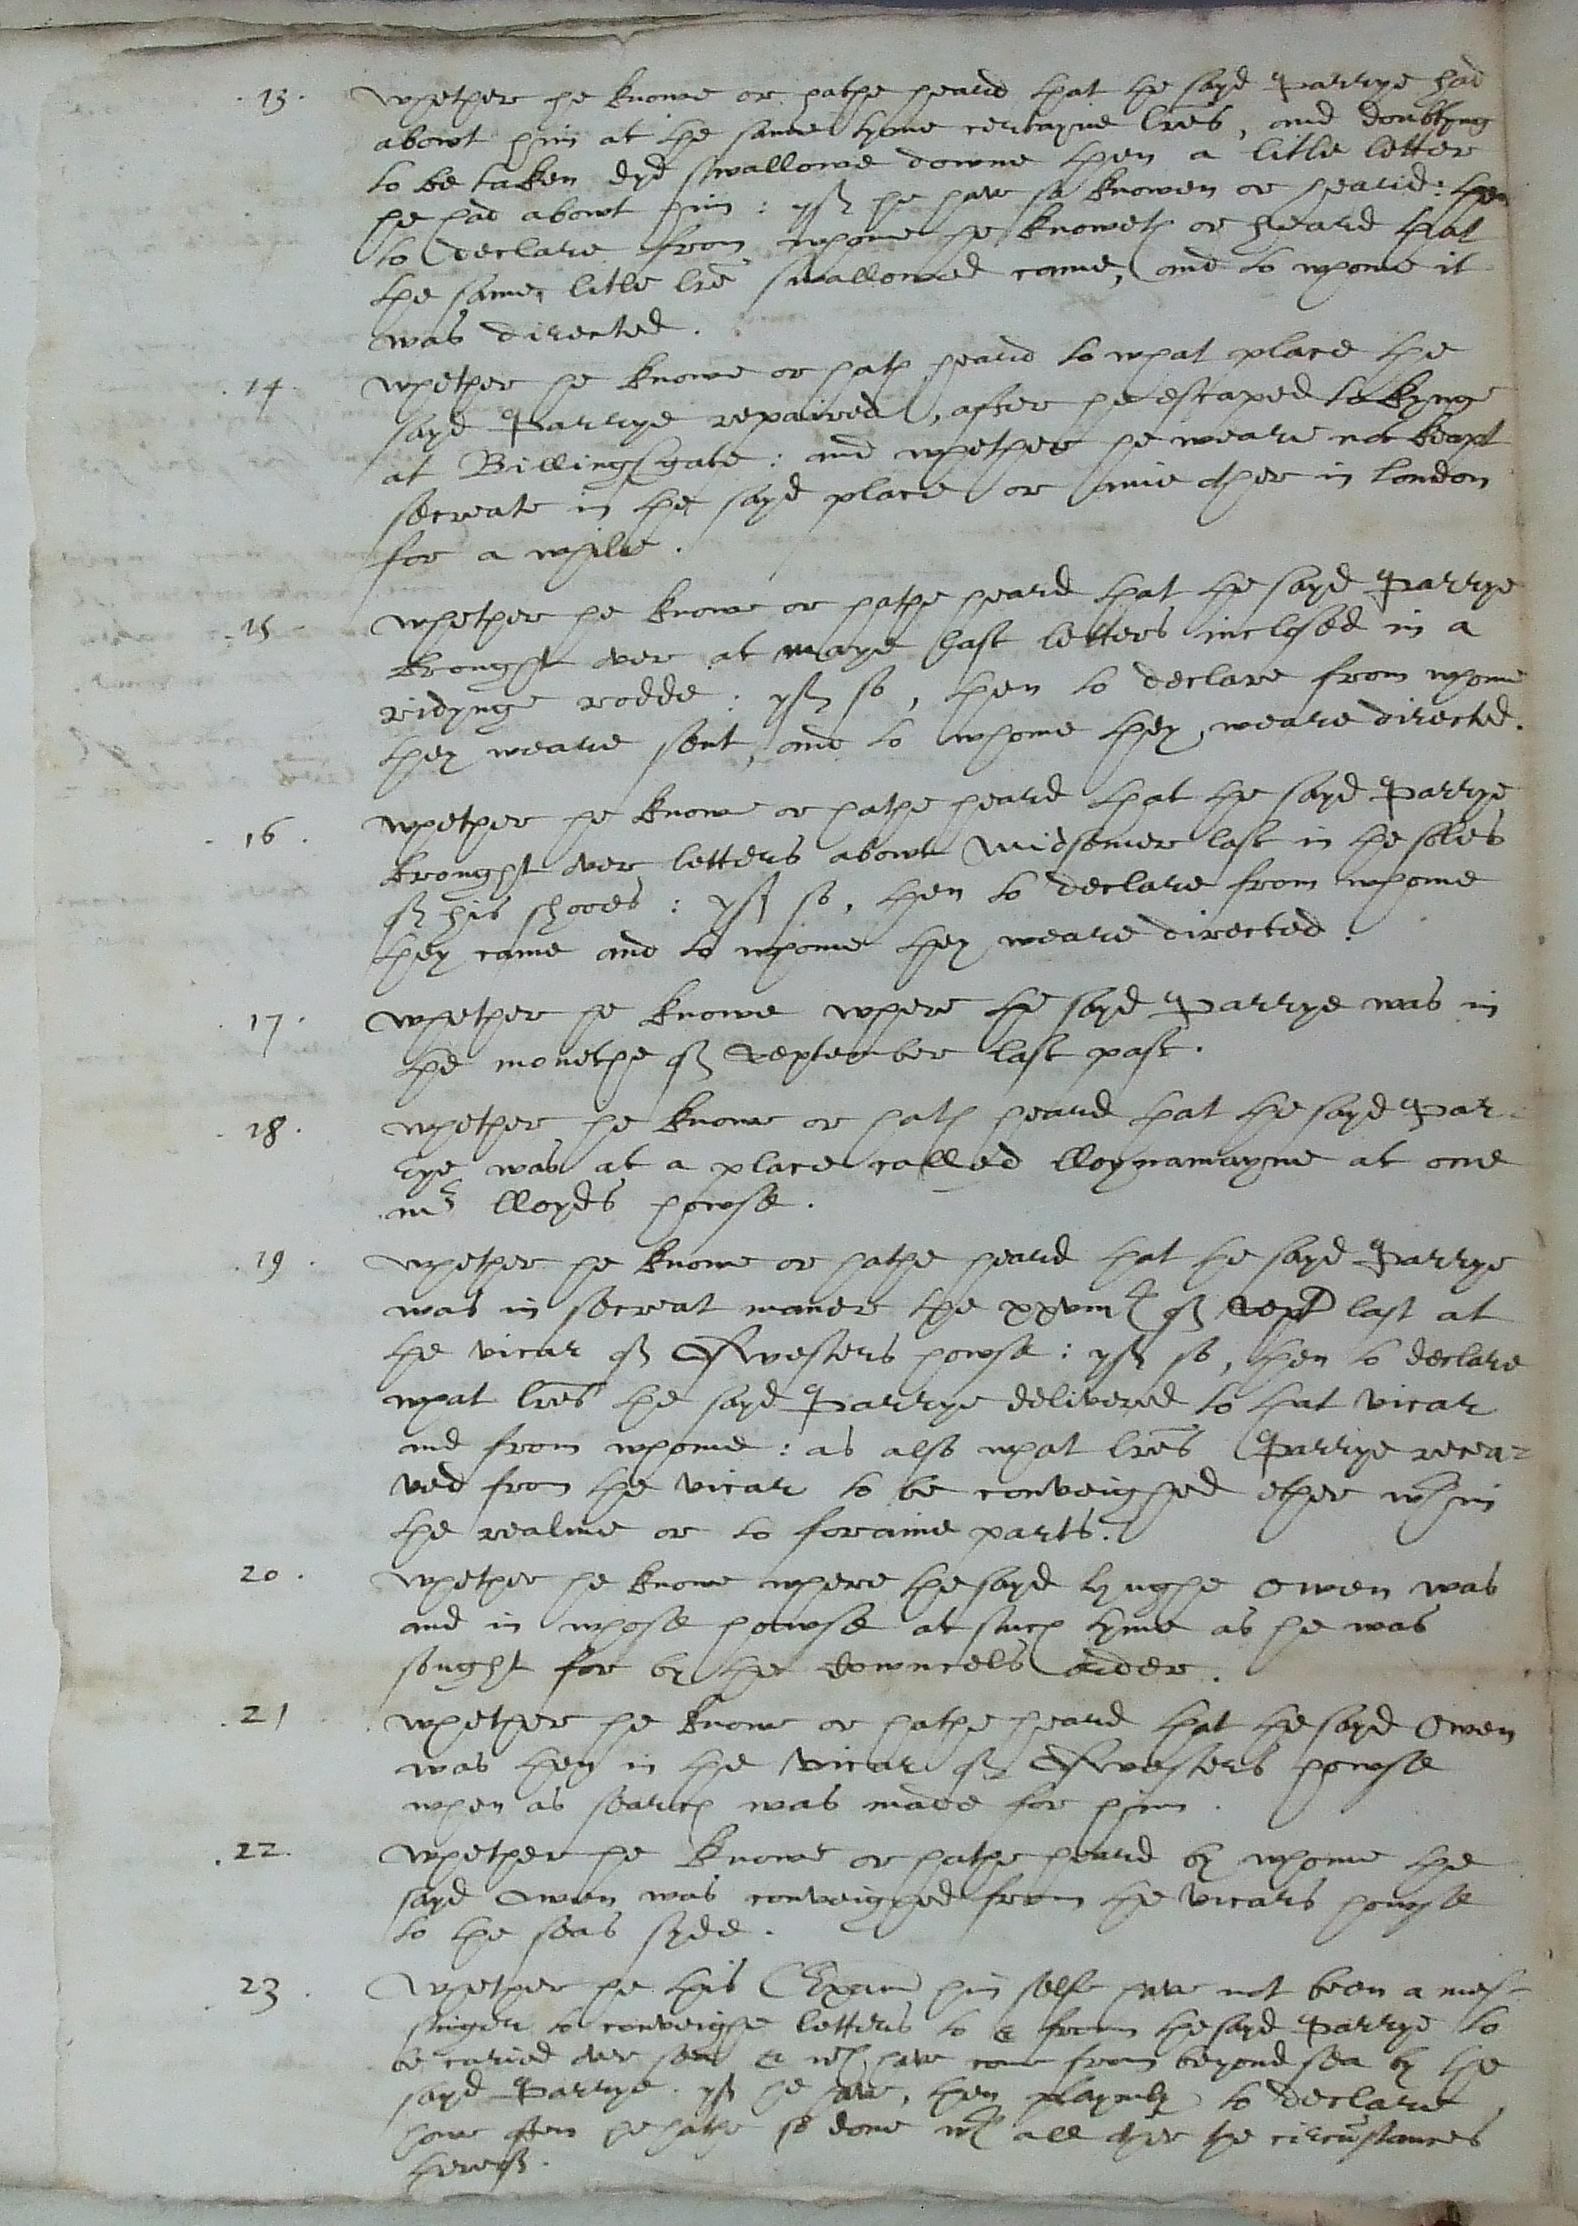 .13. Whether he knowe or hathe heard that the sayd Parrye had
abowt him at the same tyme certayne lres, and doubtyng
to be taken dyd swallowe downe then a litle letter
he had abowt him : yf he have so knowen or heard : then
to declare from whome he knoweth or heard that
the same litle lre swallowed came, and to whome it
was directed.
.14. Whether he knowe or hath heard to what place the
sayd Parrye repaired, after he escaped takynge
at Billingsgate : and whether he weare not keapt
secreate in the sayd place or anie other in London
for a while.
.15. Whether he knowe or hathe heard that the sayd Parrye
brought over at maye last letters inclosed in a
ridynge rodde : yf so, then to declare from whome
they weare sent, and to whome they weare directed.
.16. Whether he knowe or hathe heard that the sayd Parrye
brought over letters abowt Midsomer last in the soles
of his shooes : yf so, then to declare from whome
they came and to whome they weare directed.
.17. Whether he knowe where the sayd Parrye was in
the monethe of September last past.
.18. Whether he knowe or hath heard that the sayd Par-
rye was at a place called lloynamayne at one
mr lloyds howse.
.19. Whether he knowe or hathe heard that the sayd Parrye
was in secreat maner the xxviiith of Sept last at
the vicar of Oswesters howse : yf so, then to declare
what lres the sayd Parrye delivered to that vicar
and from whome : as also what lres Parrye recea-
ved from the vicar to be conveighed ether wthin
the realme or to foraine parts.
20. Whether he knowe where the sayd Hughe Owen was
and in whose howse at such tyme as he was
sought for by the Cowncels order.
.21. Whether he knowe or hathe heard that the sayd Owen
was then in the vicar of Oswesters howse
when as search was made for him.
.22. Whether he knowe or hathe heard by whome the
sayd Owen was conveighed from the vicars howse
to the seas syde.
.23. Whether he this Exam him selfe have not been a mes-
singer to conveighe letters to & from the sayd Parrye to
be caried over sea & wch have come from beyond sea by the
sayd Parrye. yf he have, then playnly to declare
howe often he hathe so done wth all other the circumstances
thereof.